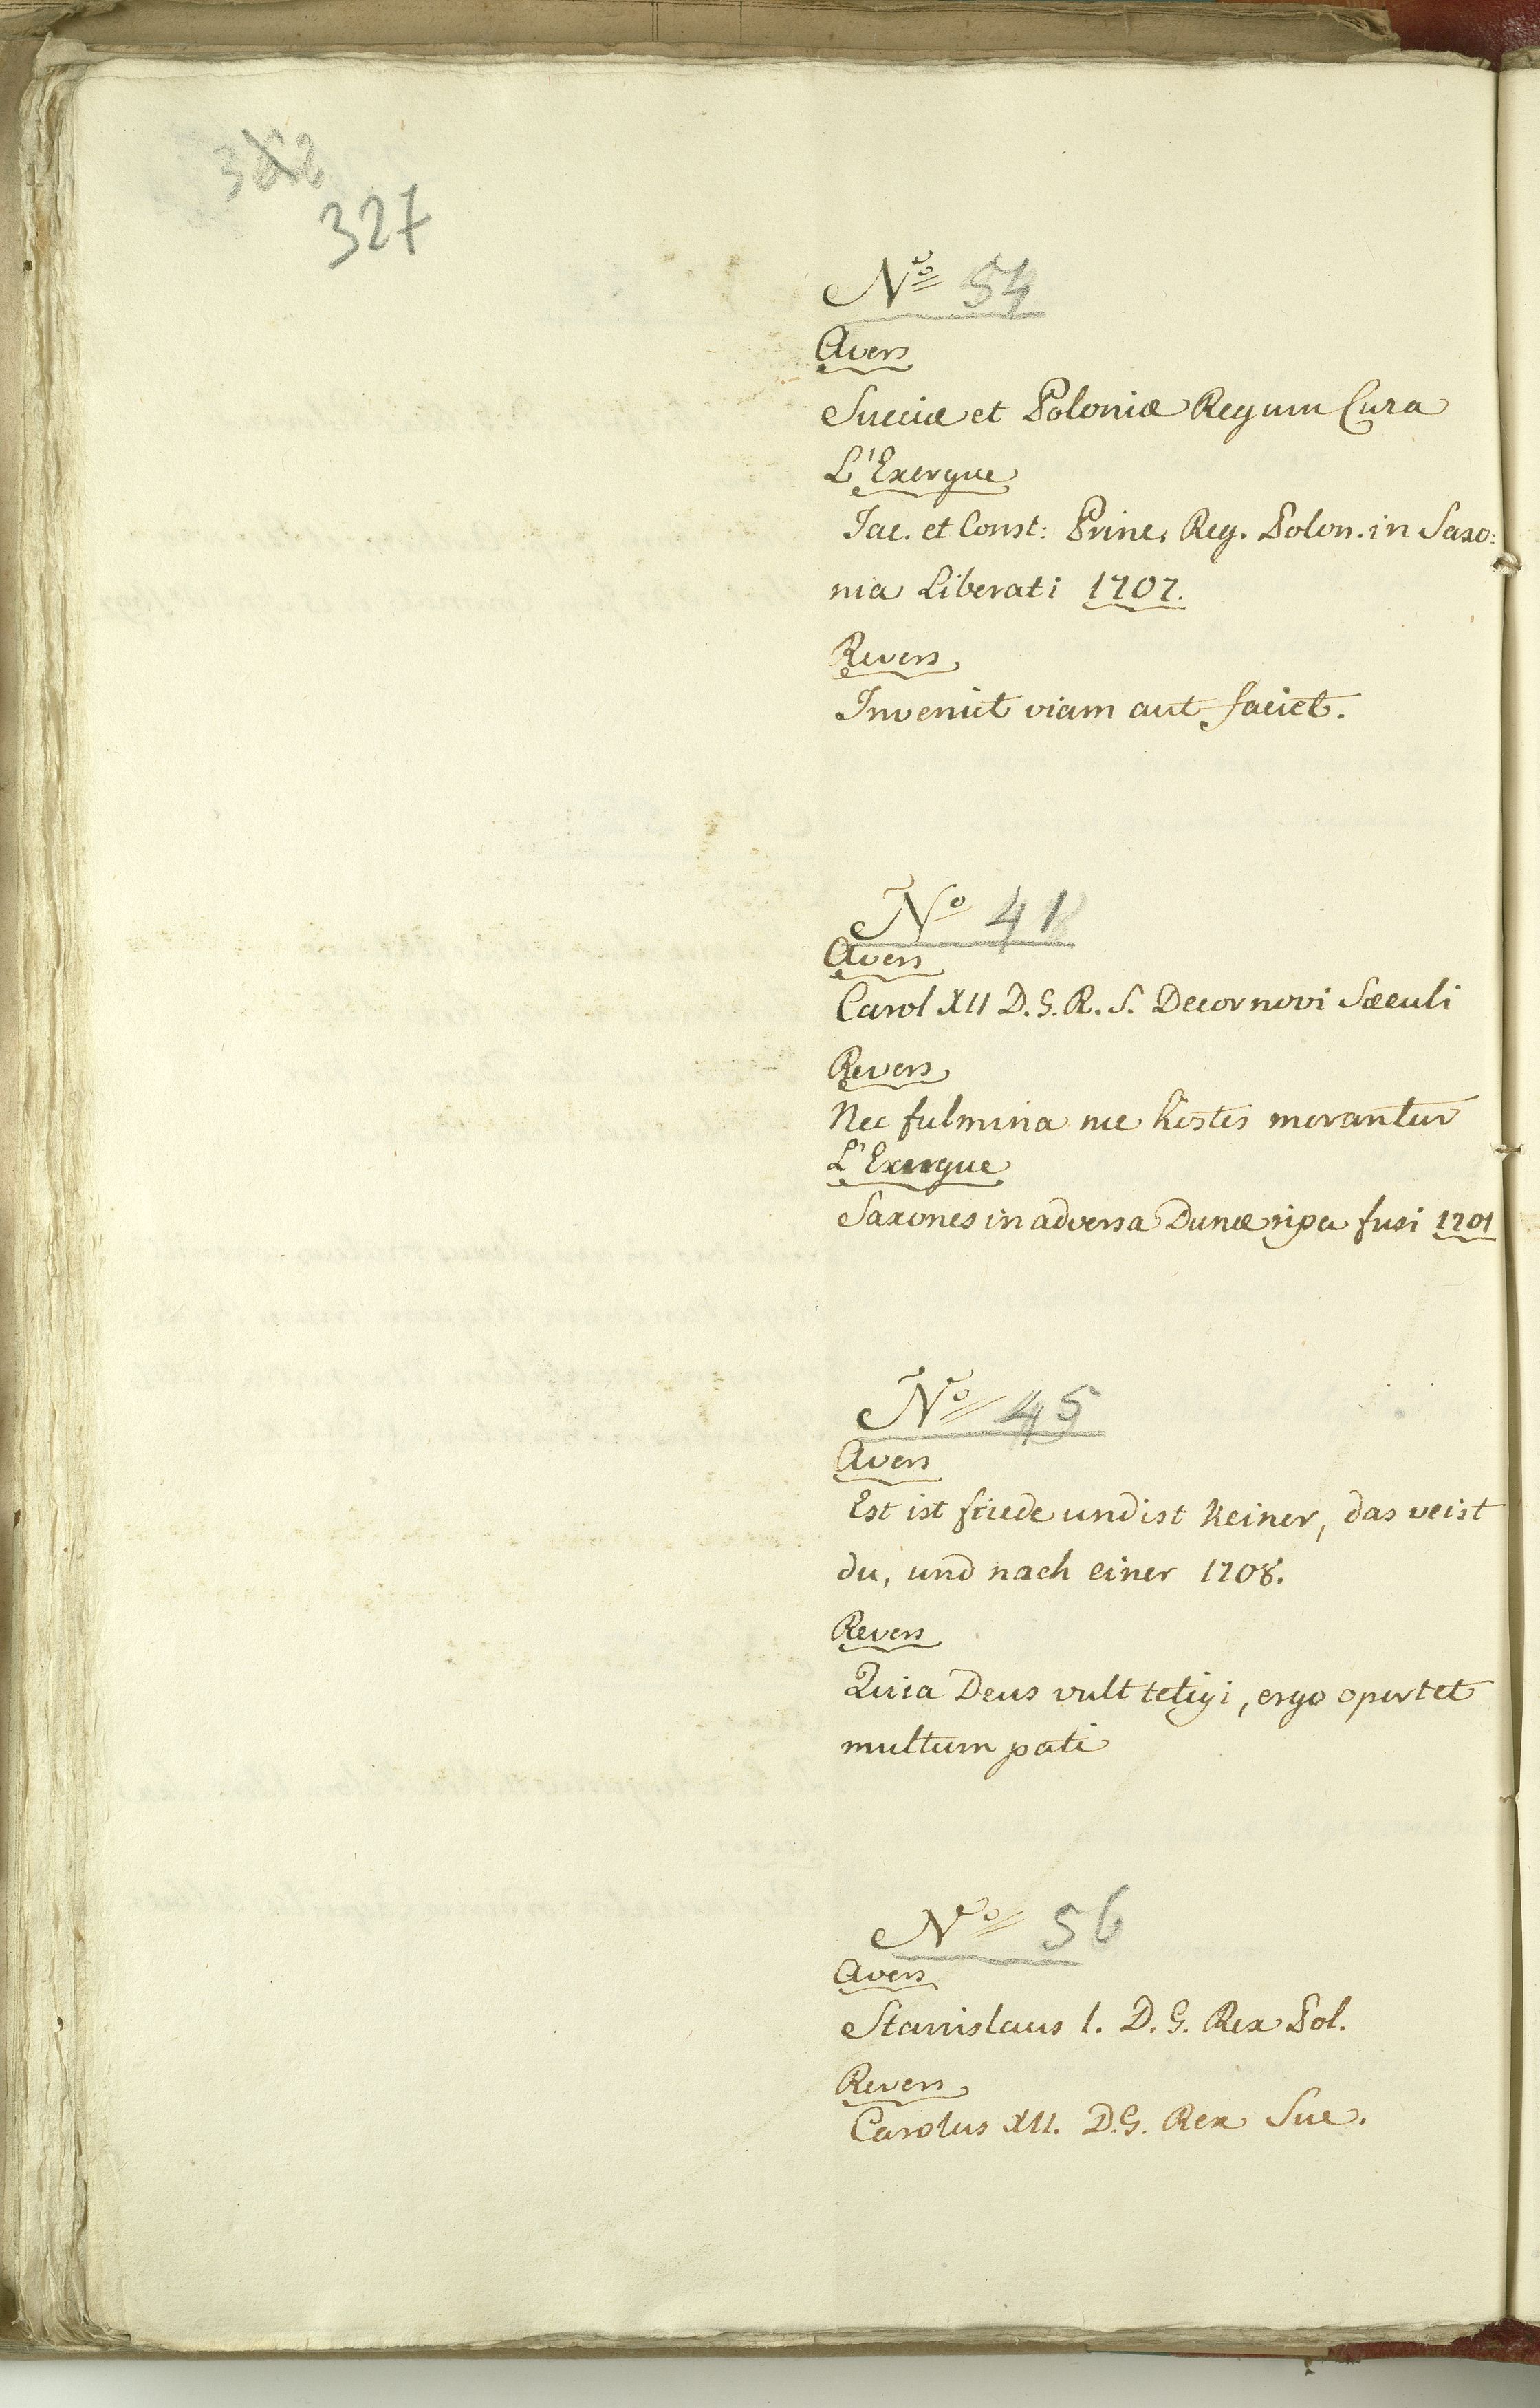 327
Nº 54
Avers
Sueciæ et Poloniæ Regum Cura
L'Exergue
Jac. et Const: Princ. Reg. Polon. in Saxo:
nia Liberati 1707.
Revers
Inveniet viam aut faciet.
Nº 41
Avers
Carol XII D. G. R. S. Decor novi Sæculi
Revers
Nec fulmina nec hostes morantur
L'Exergue
Saxones in adversa Dunæ ripa fusi 1701
Nº 45
Avers
Est ist friede und ist keiner, das veist
du, und nach einer 1708.
Revers
Quia Deus vult tetigi, ergo oportet
multum pati
Nº 56
Avers
Stanislaus I. D. G. Rex Pol.
Revers
Carolus XII. D. G. Rex Sue.